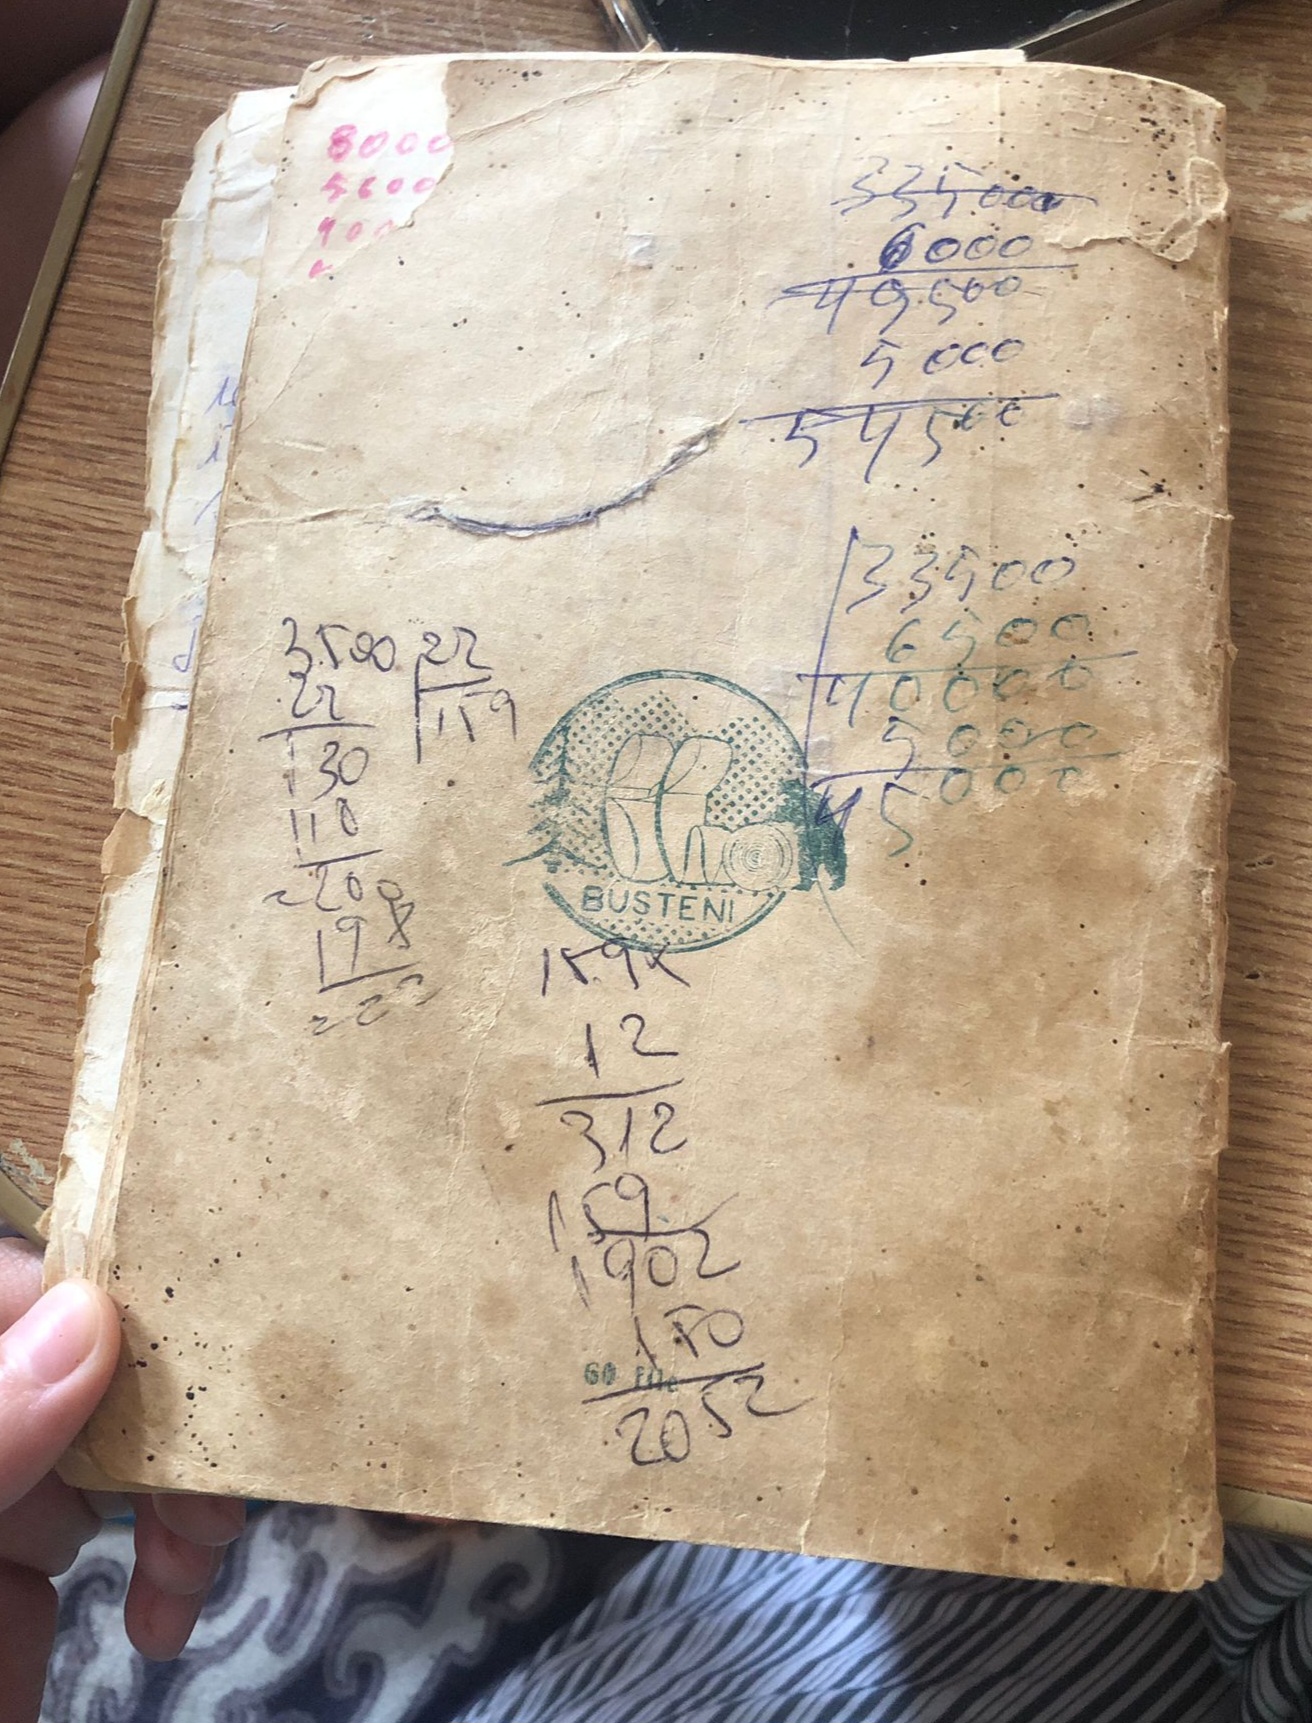 8000
5600
400
335000
6000
49500
5000
54500
33500
6500
40000
5000
45000
3500 22
22 159
130
110
200
198
=2
BUȘTENI
159x
12
312
159
1902
150
60 file
2052